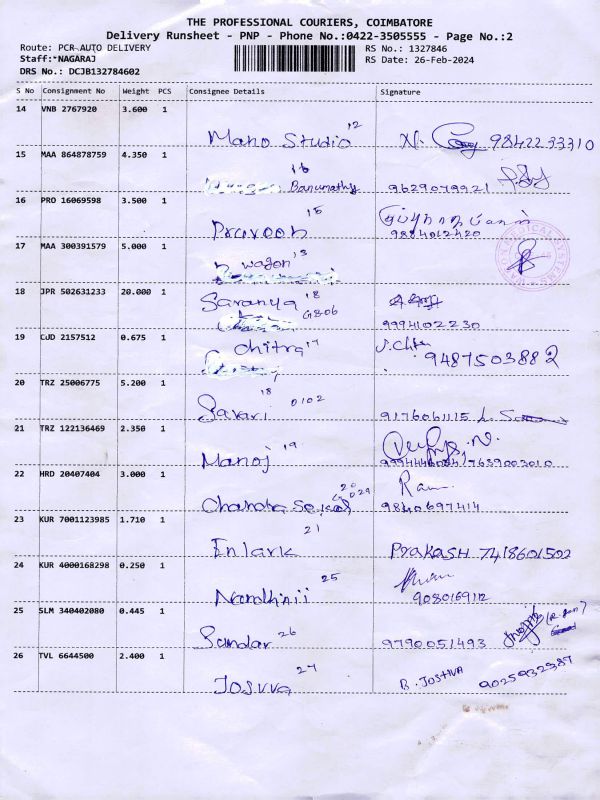 THE PROFESSIONAL COURIERS, COIMBATORE
Delivery Runsheet - PNP - Phone No.:0422-3505555 - Page No.:2
Route: PCR AUTO DELIVERY RS No.: 1327846
Staff:*NAGARAJ RS Date: 26-Feb-2024
DRS No.: DCJB132784602
S No Consignment No Weight PCS Consignee Details Signature
14 VNB 2767920 3.600 1
Mano Studio 12 N. 9842233310
15 MAA 864878759 4.350 1
16
Banumathy 9629079921
16 PRO 16069598 3.500 1
Praveen 15 9884012420
17 MAA 300391579 5.000 1
wagon 13
18 JPR 502631233 20.000 1
Saranya 18 G806
9994102230
19 CJD 2157512 0.675 1
chitra 17 9487503882
20 TRZ 25006775 5.200 1
Savari 18 0102 9176061115
21 TRZ 122136469 2.350 1
Manoj 19 7639003010
22 HRD 20407404 3.000 1
Chandra 20 Ram
9840697414
23 KUR 7001123985 1.710 1
21
Enlark PRAKASH 7418601502
24 KUR 4000168298 0.250 1
Nandhinii 25 9080169112
25 SLM 340402080 0.445 1
Sundar 26 9790051493
26 TVL 6644500 2.400 1
JOSUVA 27 B. JOSHVA 9025932387